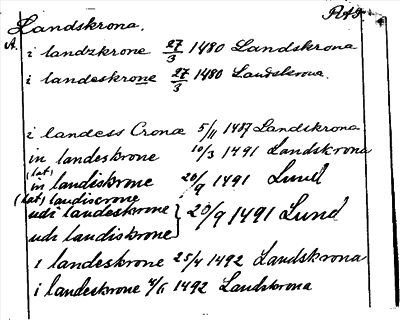 Landskrona. RAT
A.
i landzkrone 27/3 1480 Landskrona
i landeskrone 27/3 1480 Landskrona.
i landess Crona 5/11 1487 Landskrona
in landeskrone 10/3 1491 Landskrona
(lat)
in landiskrone 20/9 1491 Lund
(lat) landiscrone
udi landeskrone } 20/9 1491 Lund
udi landiskrone
i landeskrone 25/4 1492 Landskrona
i landeskrone 4/6 1492 Landskrona